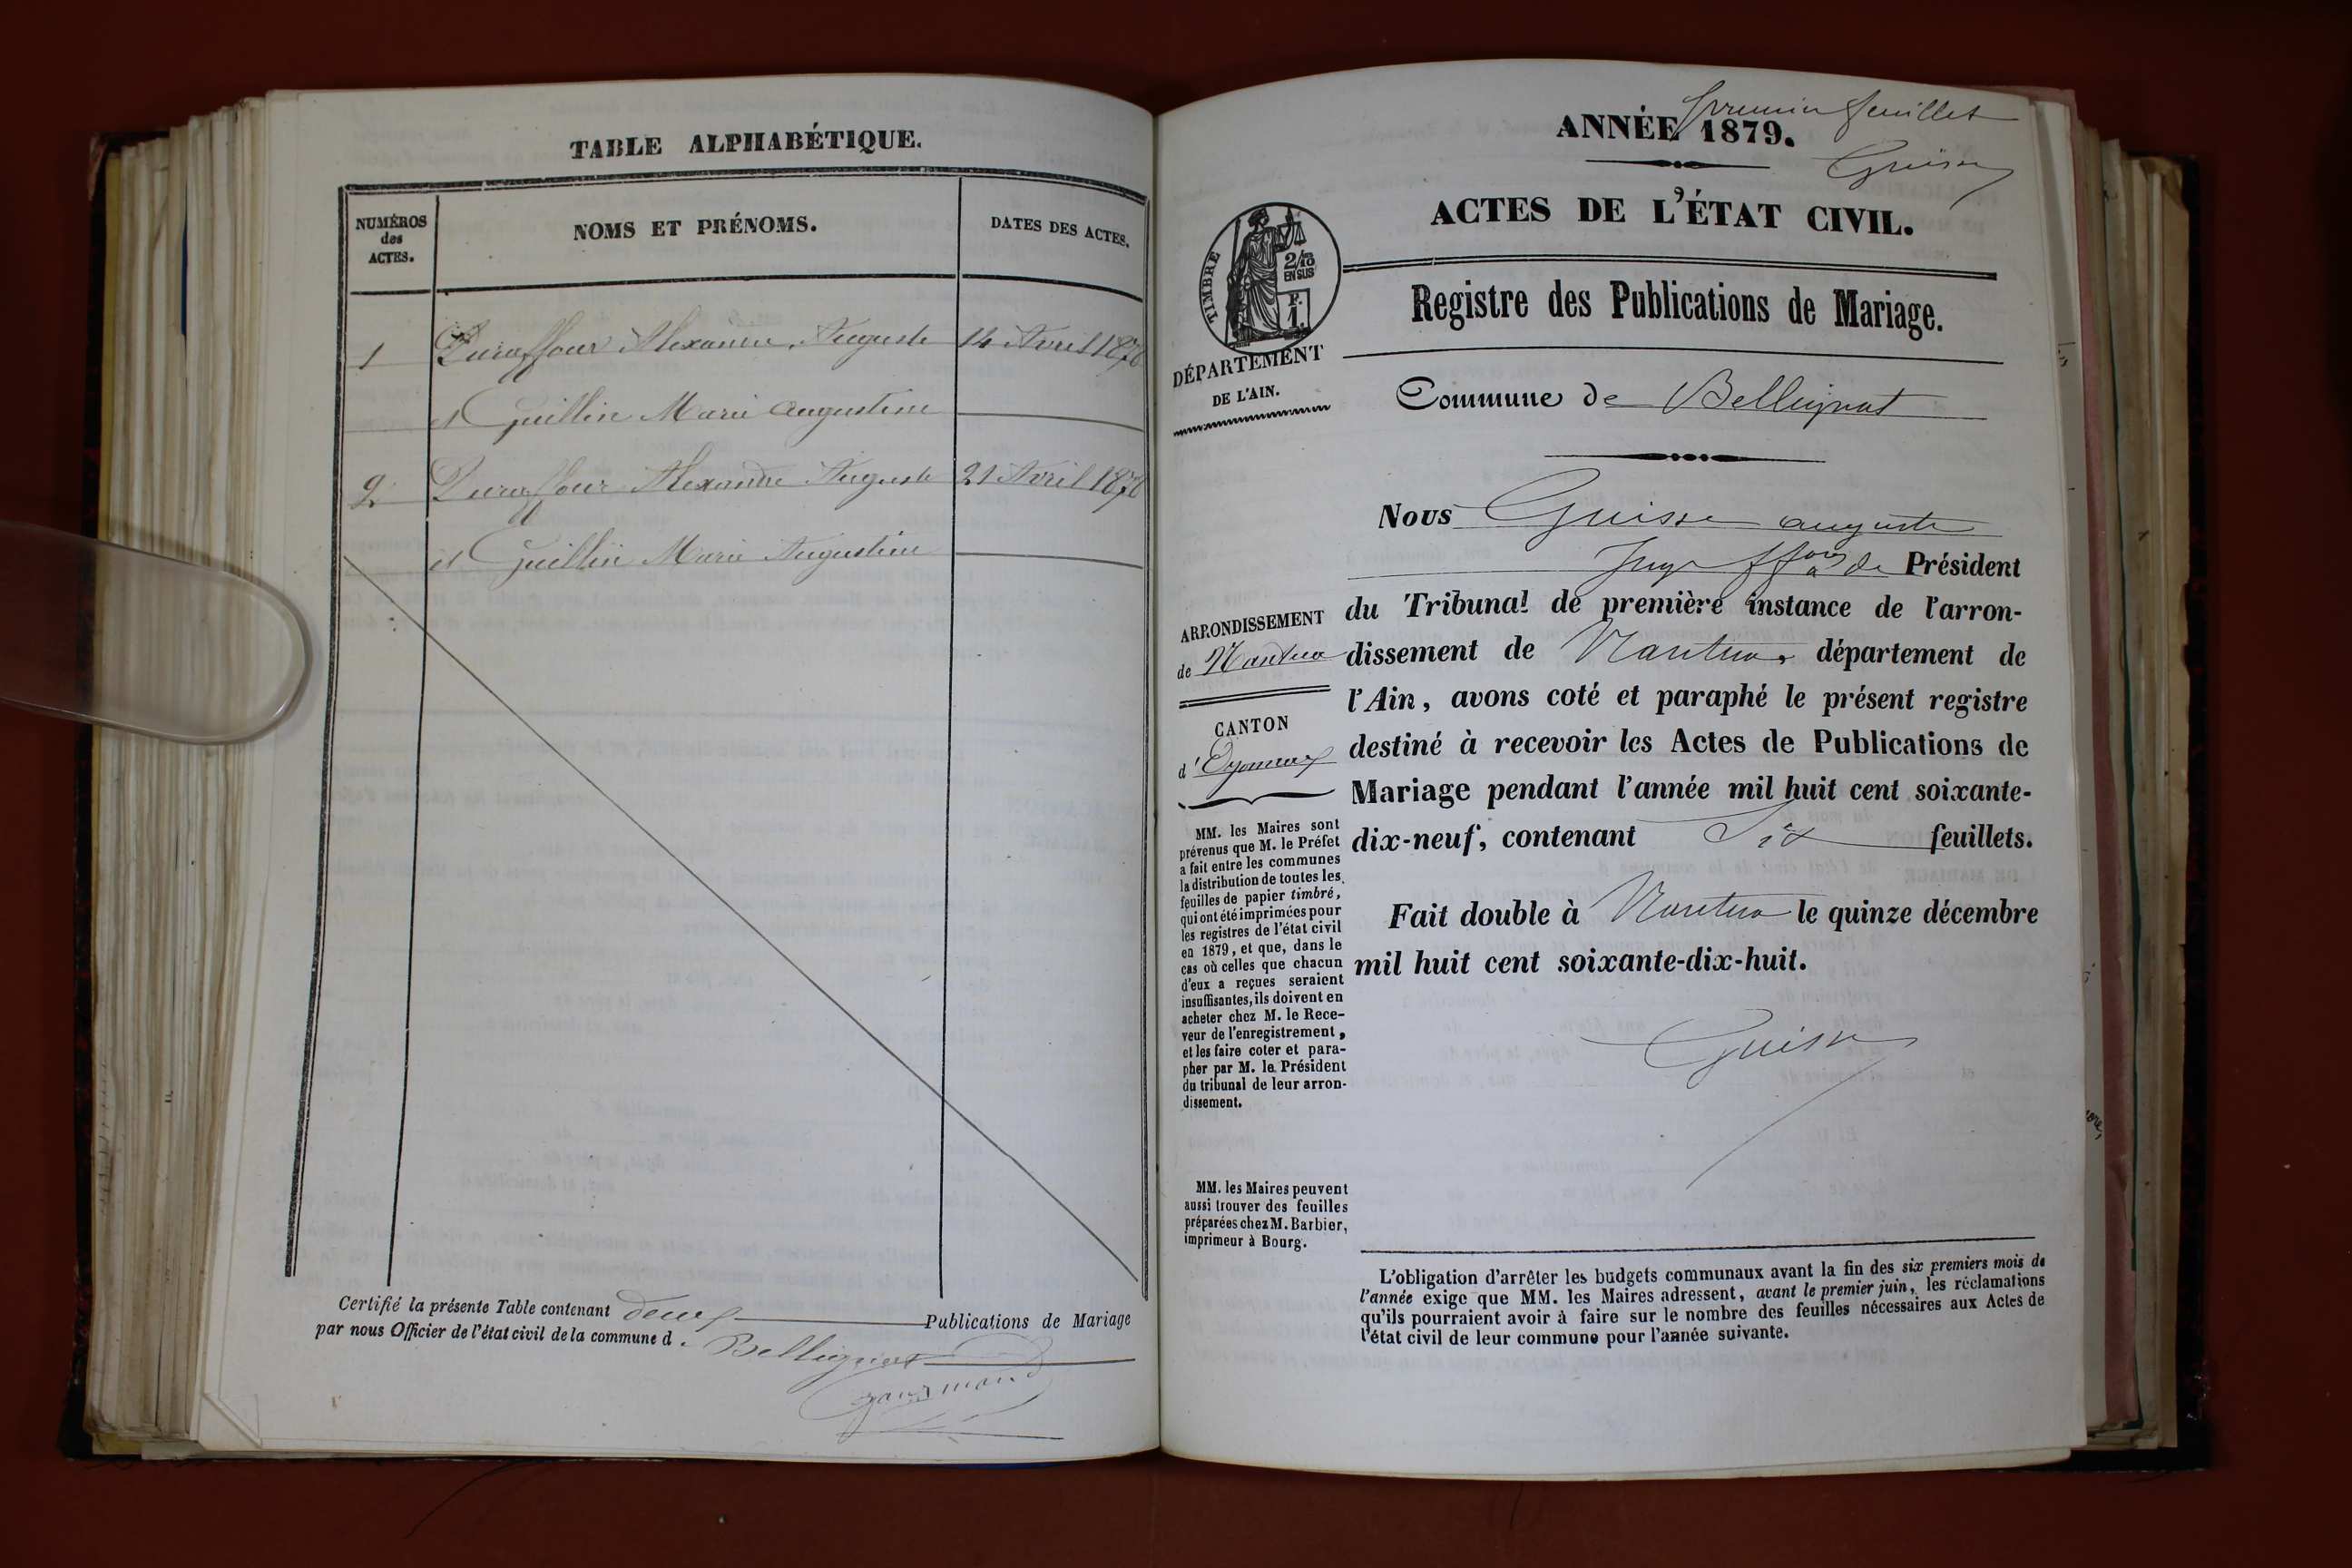 TABLE ALPHABÉTIQUE.
NUMÉROS
des
ACTES.
NOMS ET PRÉNOMS.
DATES DES ACTES.
1 Duraffour Alexandre Auguste 14 Avril 1878
et Guillin Marie Augustine
2 Duraffour Alexandre Auguste 21 Avril 1878
et Guillin Marie Augustine
Certifié la présente Table contenant deux Publications de Mariage
par nous Officier de l'état civil de la commune d Bellignat
premier feuillet
ANNÉE 1879.
ACTES DE L'ÉTAT CIVIL.
TIMBRE
2/10
EN SUS
F.
1.
Registre des Publications de Mariage.
DÉPARTEMENT
DE L'AIN.
Commune de Bellignat
Nous Guisse auguste
Juge ffons de Président
du Tribunal de première instance de l'arron-
dissement de Nantua, département de
l'Ain, avons coté et paraphé le présent registre
destiné à recevoir les Actes de Publications de
Mariage pendant l'année mil huit cent soixante-
dix-neuf, contenant Six feuillets.
Fait double à Nantua le quinze décembre
mil huit cent soixante-dix-huit.
ARRONDISSEMENT
de Nantua
CANTON
d'Oyonnax
MM. les Maires sont
prévenus que M. le Préfet
a fait entre les communes
la distribution de toutes les
feuilles de papier timbré,
qui ont été imprimées pour
les registres de l'état civil
en 1879, et que, dans le
cas où celles que chacun
d'eux a reçues seraient
insuffisantes, ils doivent en
acheter chez M. le Rece-
veur de l'enregistrement,
et les faire coter et para-
pher par M. le Président
du tribunal de leur arron-
dissement.
MM. les Maires peuvent
aussi trouver des feuilles
préparées chez M. Barbier,
imprimeur à Bourg.
L'obligation d'arrêter les budgets communaux avant la fin des six premiers mois de
l'année exige que MM. les Maires adressent, avant le premier juin, les réclamations
qu'ils pourraient avoir à faire sur le nombre des feuilles nécessaires aux Actes de
l'état civil de leur commune pour l'année suivante.